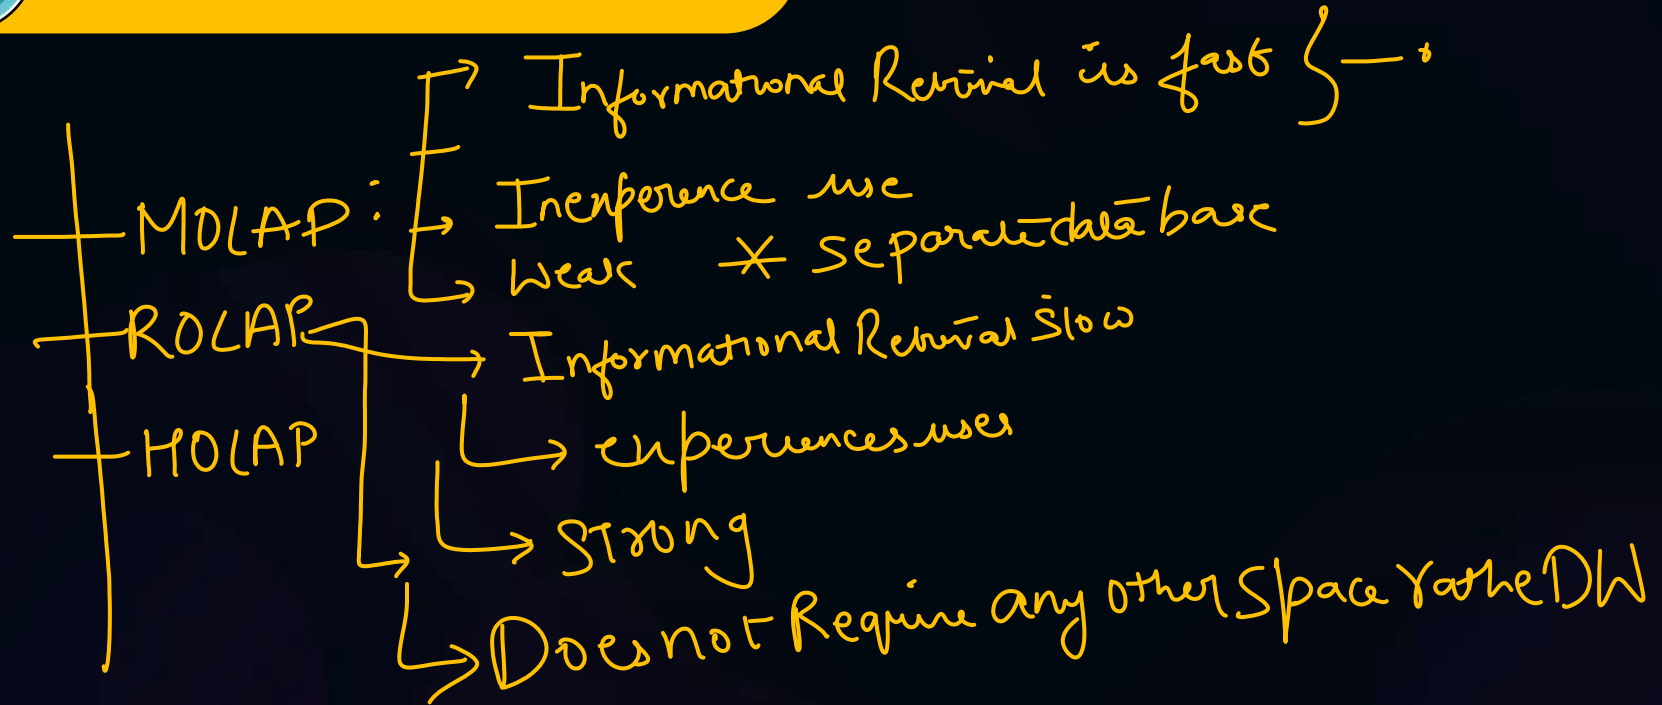 Informational Retrival is fast
MOLAP:
Inexperence use
Weak * separate database
ROLAP
Informational Retrival slow
experiences uses
HOLAP
Strong
Does not Require any other space rathe DW